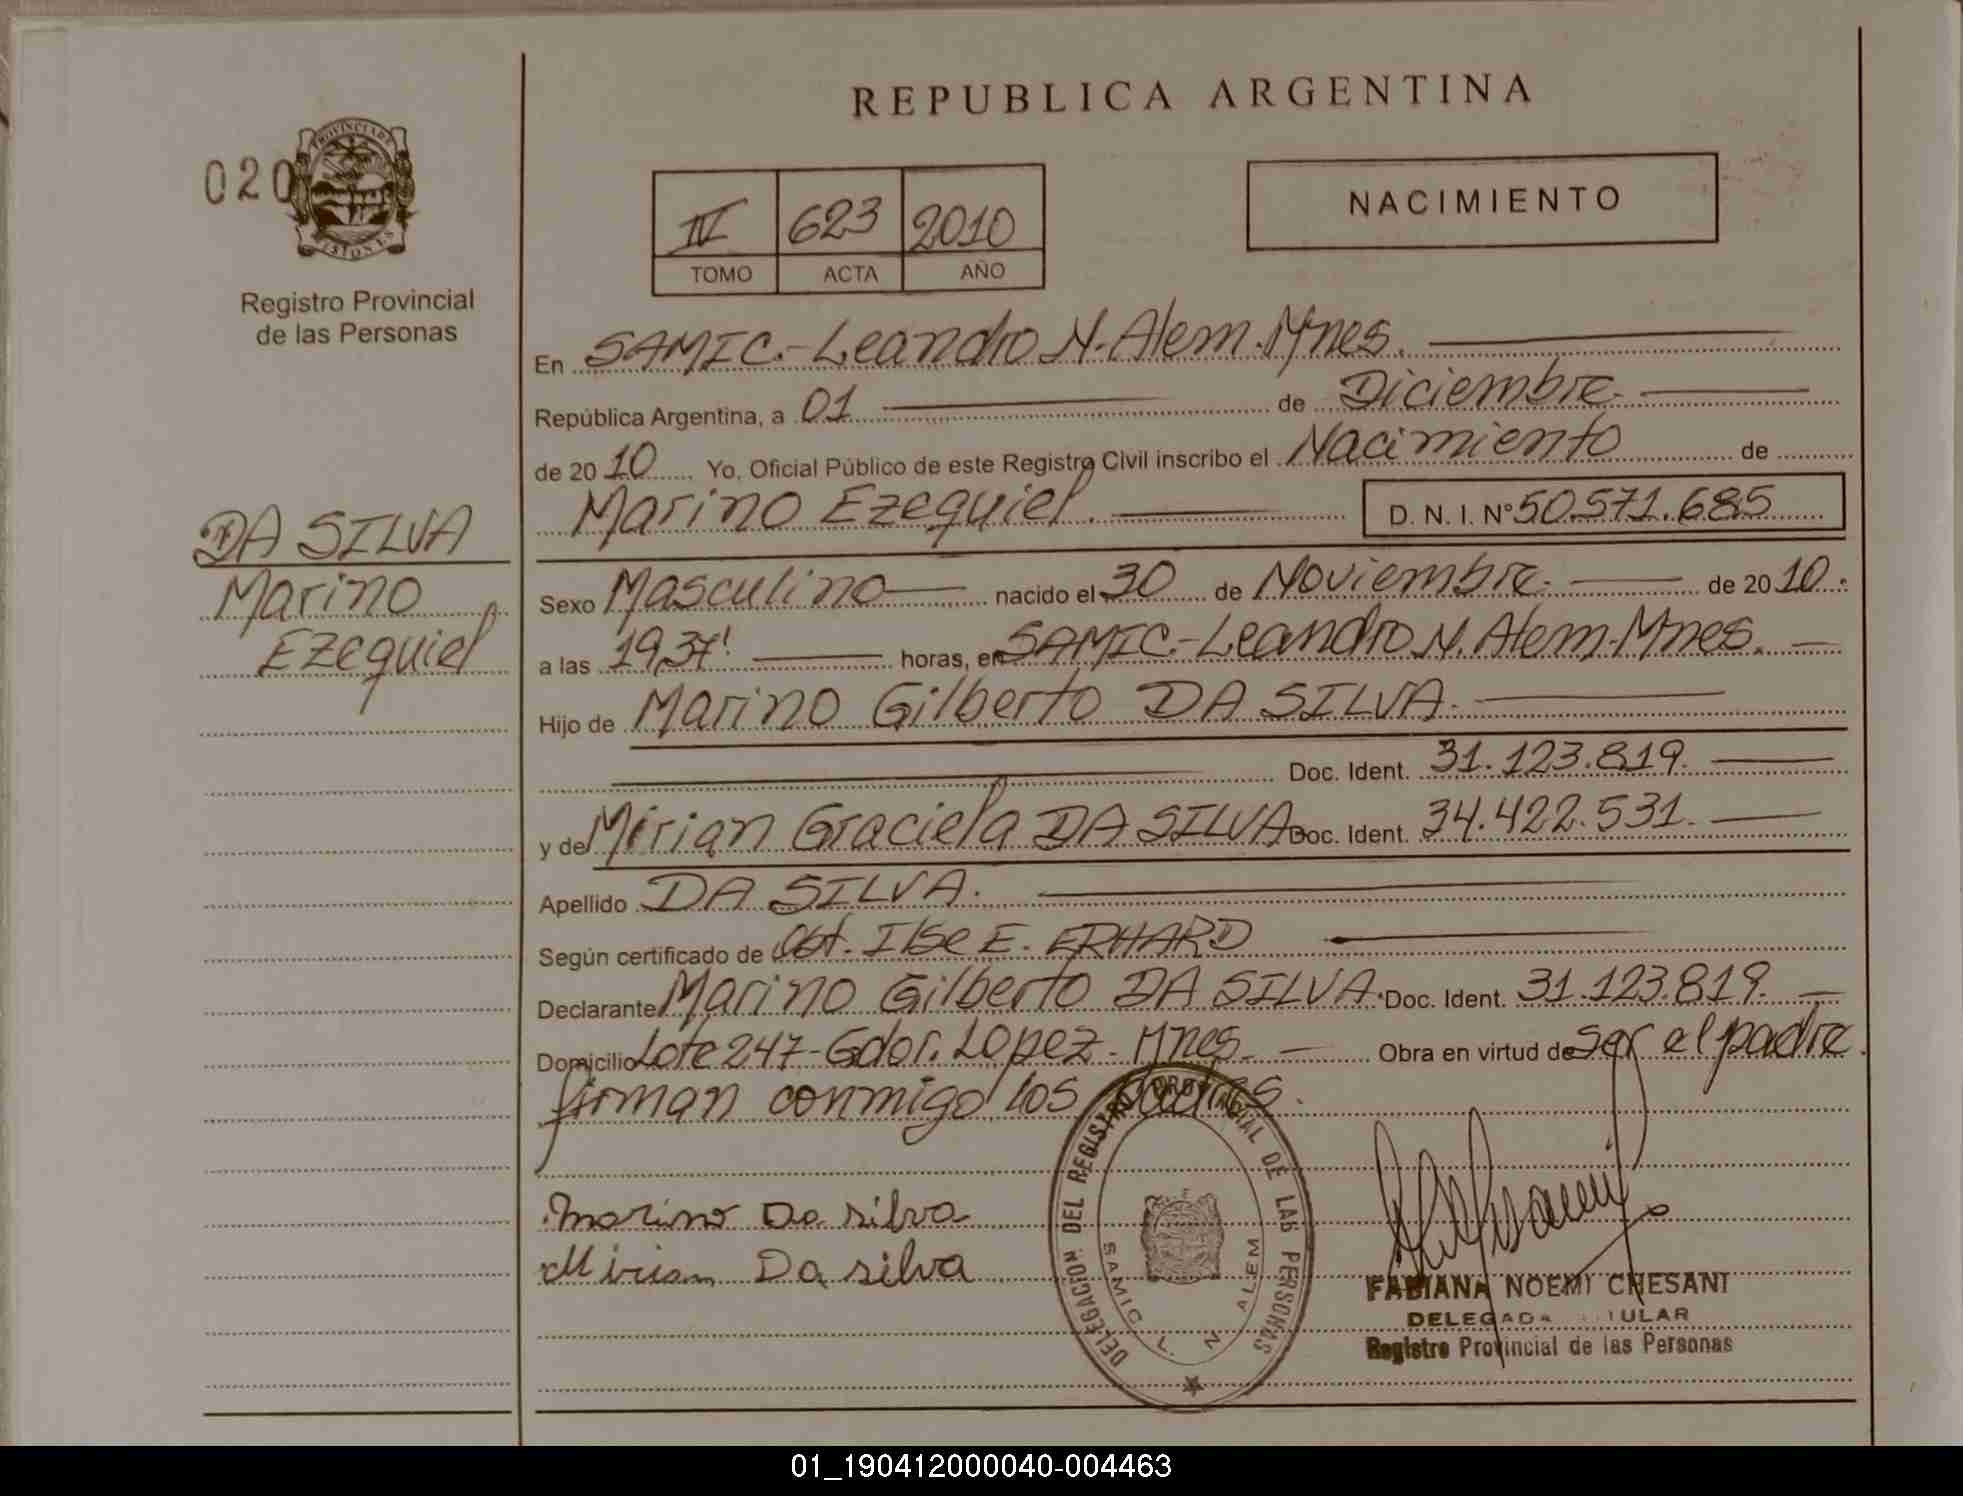 REPUBLICA ARGENTINA
020
PROVINCIA DE MISIONES
Registro Provincial
de las Personas
IV 623 2010
TOMO ACTA AÑO
NACIMIENTO
En SAMIC.-Leandro N. Alem. Mnes.
República Argentina, a 01 de Diciembre.
de 20 10 Yo, Oficial Público de este Registro Civil inscribo el Nacimiento de
Marino Ezequiel. D. N. I. Nº 50.571.685
DA SILVA
Marino
Ezequiel
Sexo Masculino nacido el 30 de Noviembre. de 20 10.
a las 19,37' horas, en SAMIC.-Leandro N. Alem-Mnes.
Hijo de Marino Gilberto DA SILVA.
Doc. Ident. 31.123.819.
y de Mirian Graciela DA SILVA Doc. Ident. 34.422.531.
Apellido DA SILVA.
Según certificado de Obt. Ilse E. ERHARD
Declarante Marino Gilberto DA SILVA. Doc. Ident. 31.123.819.
Domicilio Lote 247-Gdor. Lopez. Mnes. Obra en virtud de ser el padre.
firman conmigo los padres.
Marino Da silva
Mirian Da silva
DELEGACION DEL REGISTRO PROVINCIAL DE LAS PERSONAS
SAMIC L. N. ALEM
FABIANA NOEMI CHESANI
DELEGADA TITULAR
Registro Provincial de las Personas
01_190412000040-004463